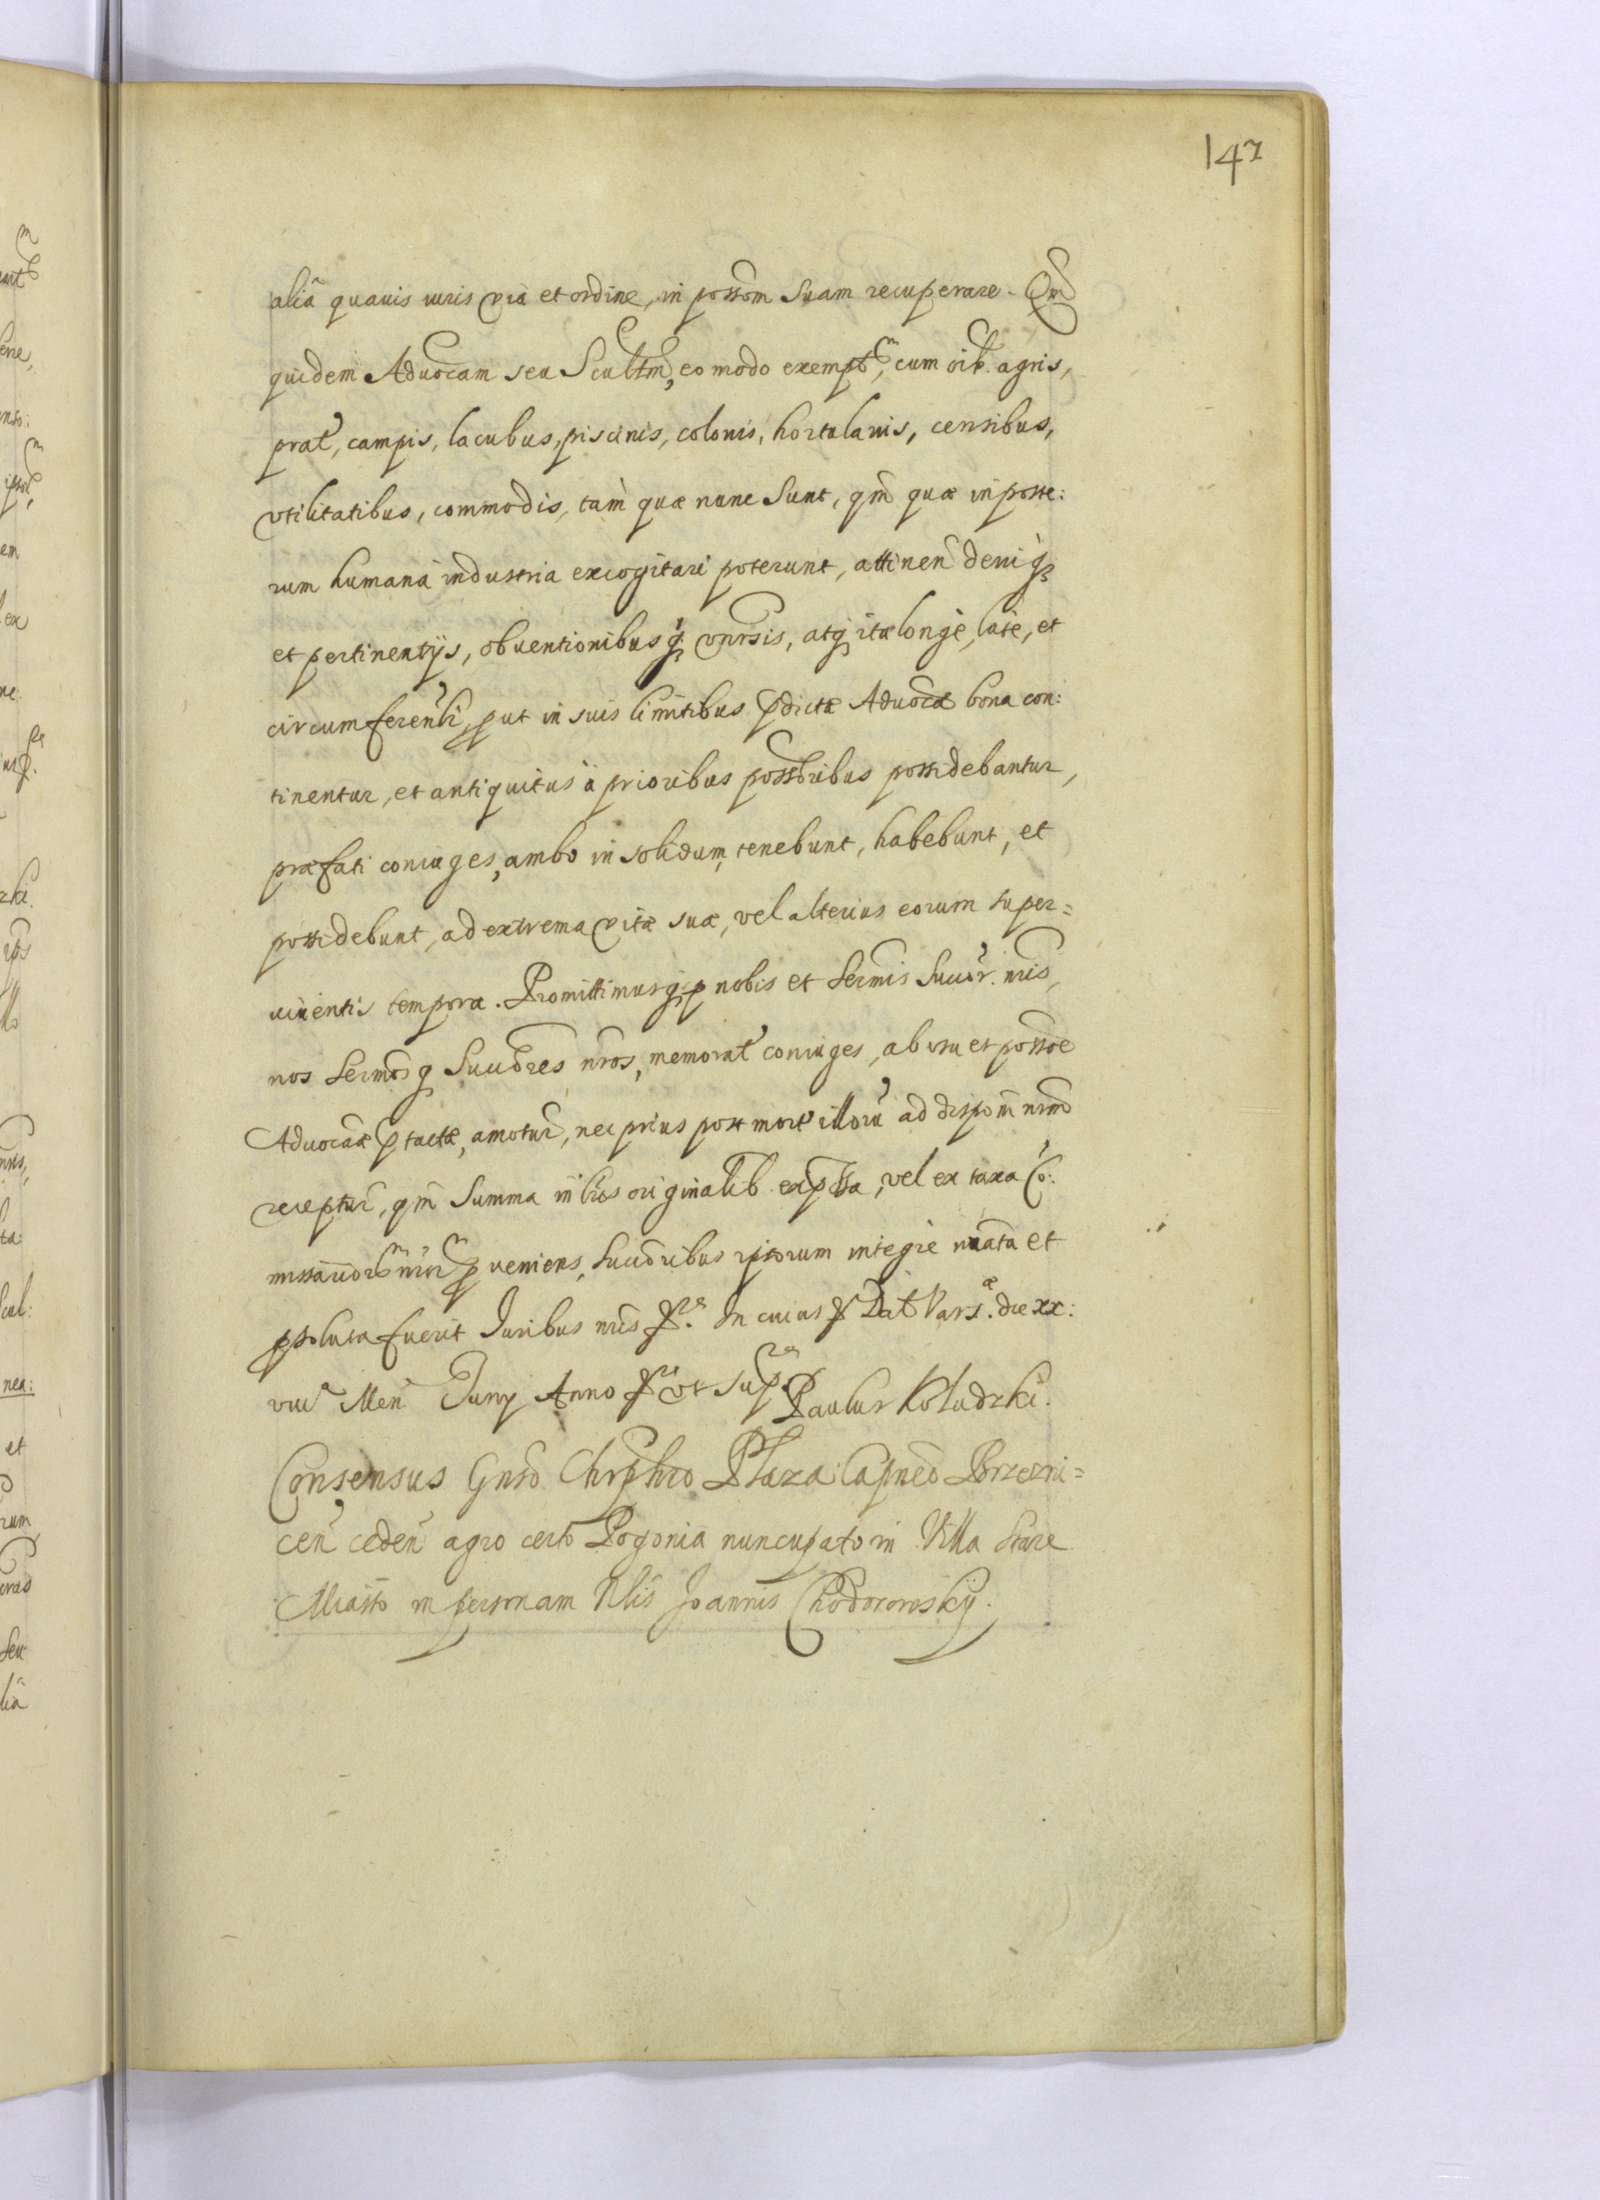 147
aliā quavis iuris via et ordine, in possom̄ suam recuperare. Qm̄
quidem Advocam seu Scultm̄, eo modo exempt̄m, cum oīb. agris,
prat̄, campis, lacubus, piscinis, colonis, hortulanis, censibus,
vtilitatibus, commodis, tam quæ nunc sunt, qm̄ quæ in poste:
rum humanâ industria excogitari poterunt, attinen̄ deniq̨
et pertinentijs, obuentionibusq̨ vnrsis, atq̨ ita longè, latè, et
circumferen̄li, put in suis limitibus pdictæ Aduocæ bona con:
tinentur, et antiquitus à prioribus possoribus possidebantur,
præfati coniuges, ambo in solidum, tenebunt, habebunt, et
possidebunt, ad extrema vitæ suæ, vel alterius eorum super=
uiuentis tempora. Promittimusq̨ p nobis et Sermis Succōr. nr̄is,
nos Sermosq̨ Succōres nr̄os, memorat̄ coniuges, ab vsu et possōe
Aduocaæ ptactæ, amotur̄, nec prius post mort̄ illoru ad dispom̄ nr̄am
receptur̄, qm̄ summa in lr̄is originalib. exp̄ssa, vel ex taxa Co:
missariorm̄ nr̄orm̄ pueniens, succōribus ipsorum integrè nrata et
psoluta fuerit Juribus nr̄is &ra. In cuius & Dat Vars.æ die xx:
viiia Men̄ Junij Anno &ra vt supra Paulus Koludzki.
Consensus Gnso Chrphro Płaza Capneo Brzezni=
cen̄ cedēn agro certo Pogonia nuncupato in Villa Stare
Miasto in personam Nlis Joannis Chodorowskÿ.